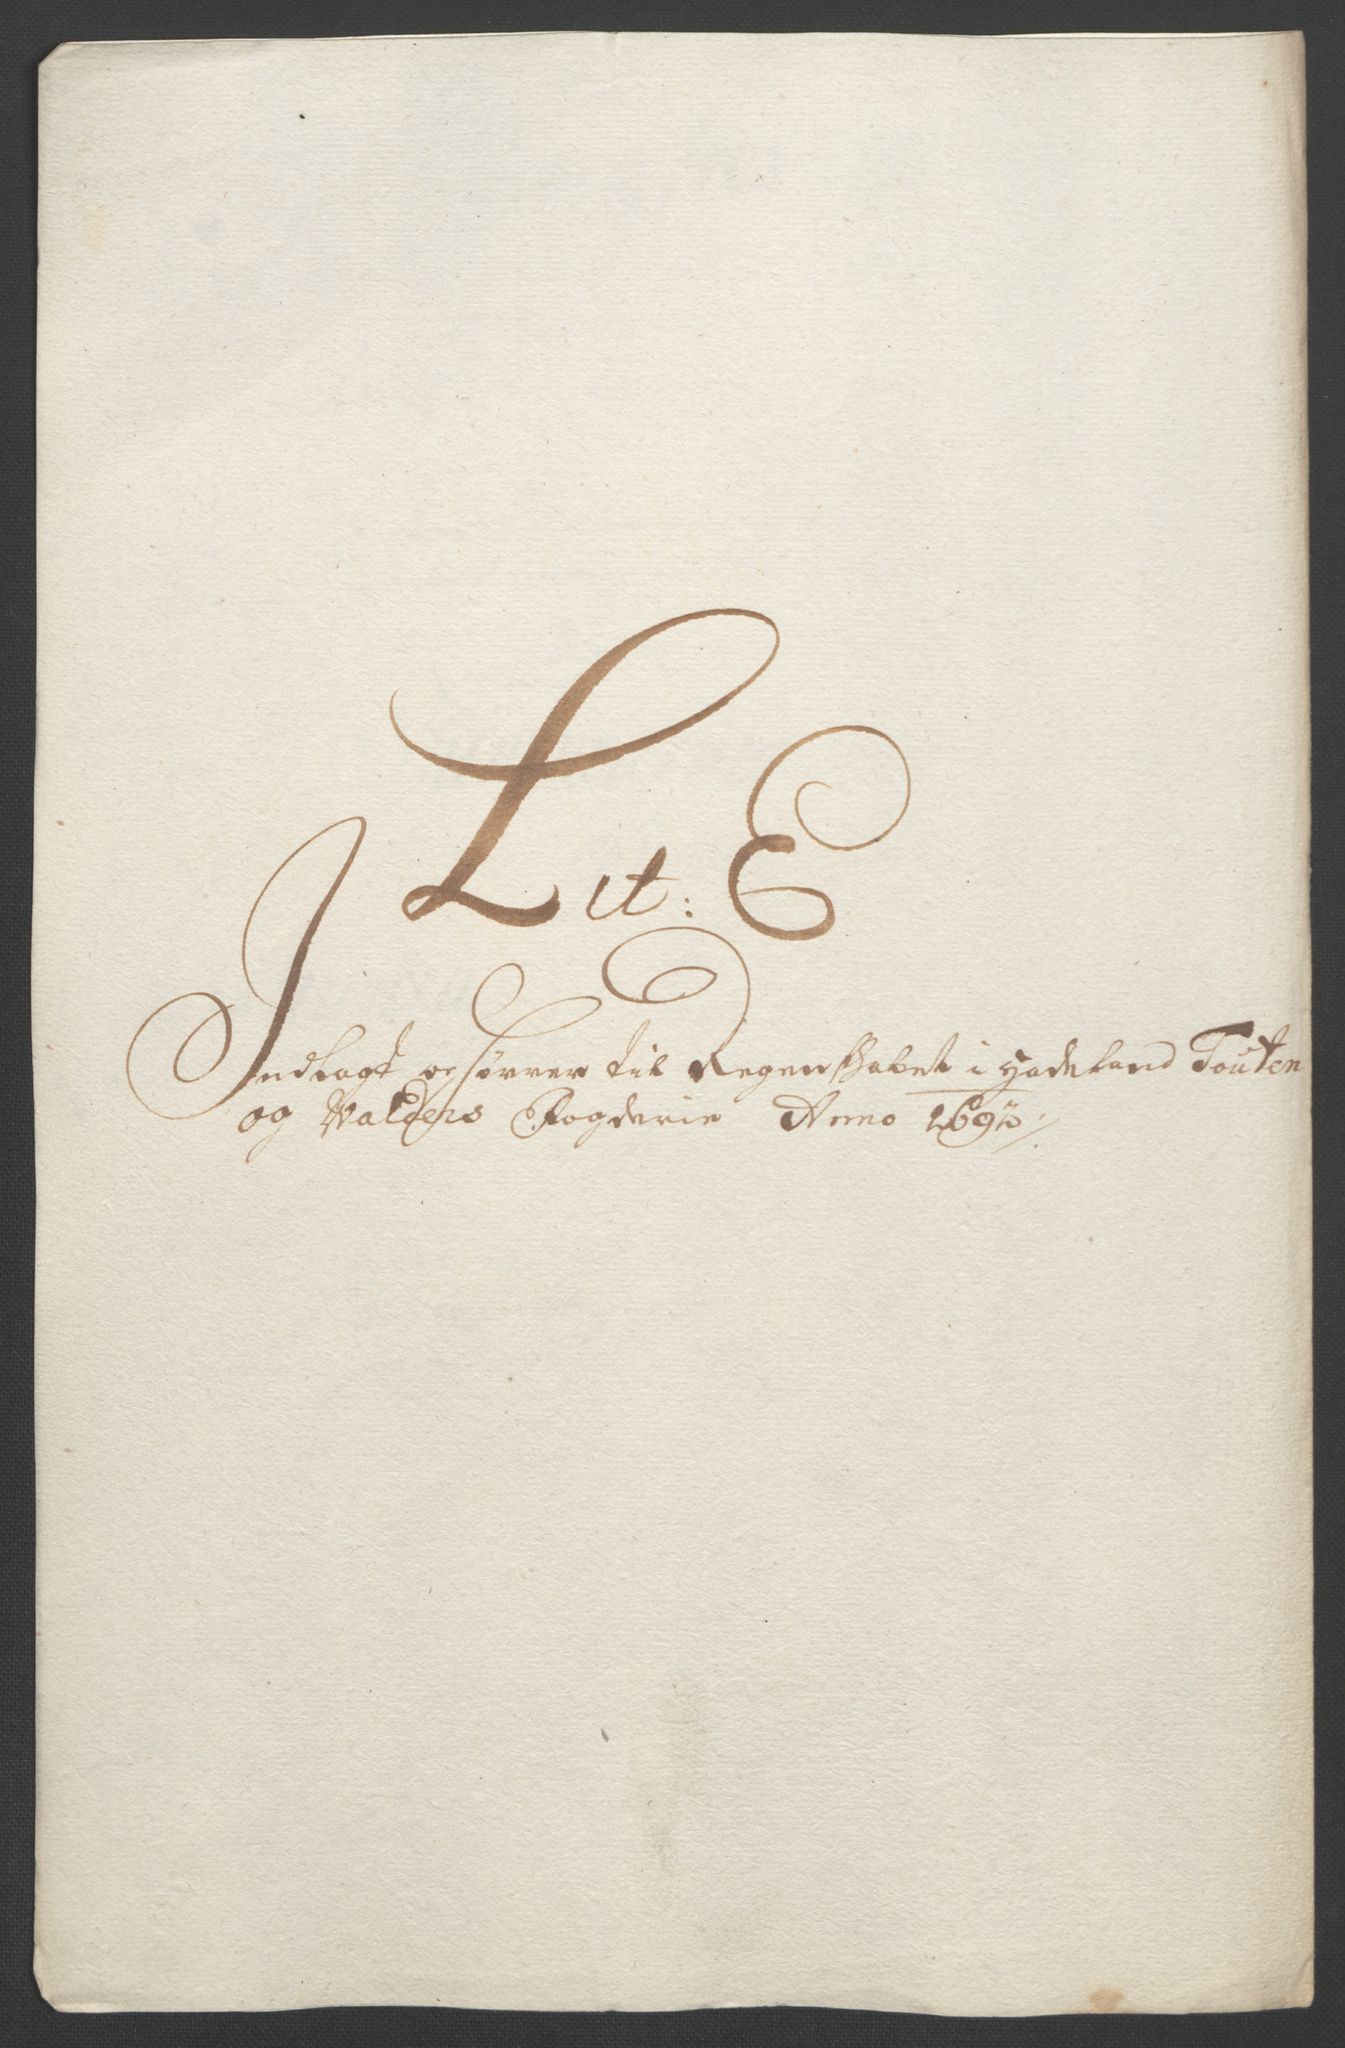 Lit: E
Indlagt til Regenskabet i Hadeland Touten
og Valders Fogderie Anno 1693